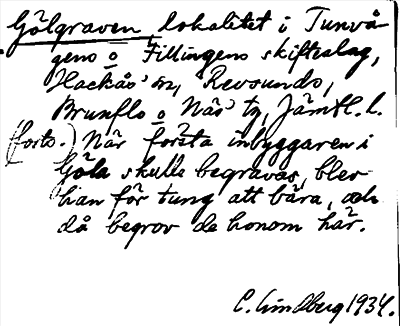 Gölgraven, lokalitet i Tunvå-
gens o Fillingens skifteslag,
Hackås' sn, Revsunds,
Brunflo o Näs' tg, Jämtl. l.
(forts.) När första inbyggaren i
Göla skulle begravas, blev
han för tung att bära, och
då begrov de honom här.
C. Lindberg 1934.